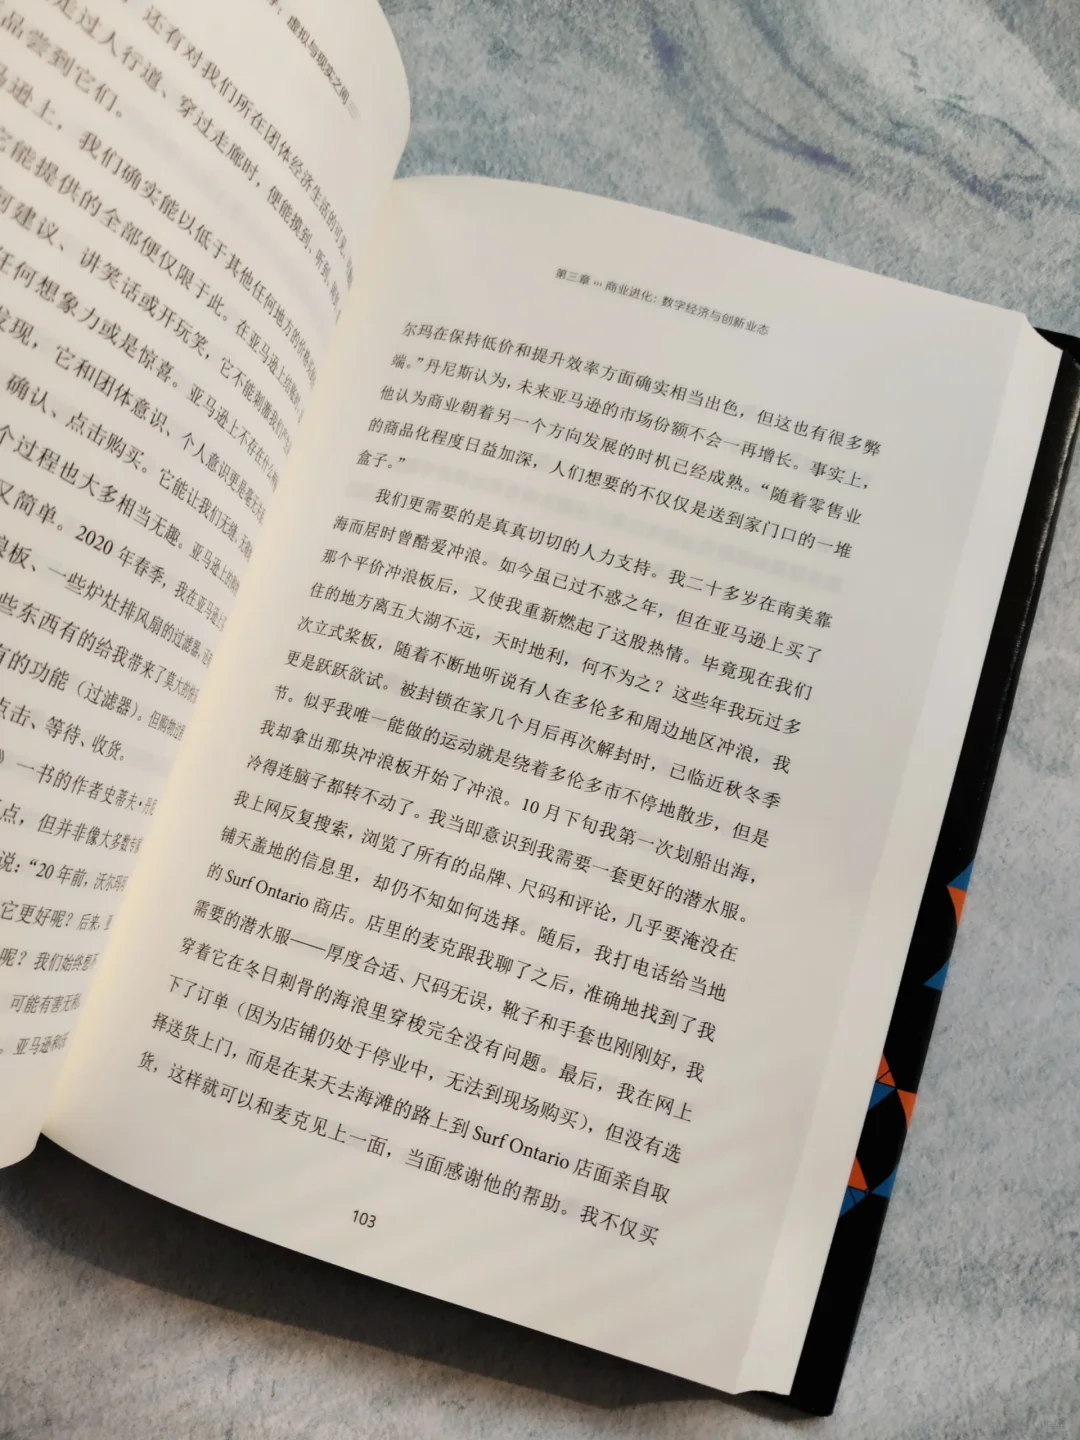 ：虚拟与现实之间
还有对我们所在团体经济生活的可见、
走过人行道、穿过走廊时，便能摸到、听到、
品尝到它们。
马逊上，我们确实能以低于其他任何地方的价格
它能提供的全部便仅限于此。在亚马逊上
建议、讲笑话或开玩笑，它不能刺激我们
任何想象力或是惊喜。亚马逊上不存在什么
发现，它和团体意识、个人意识更是毫无
确认、点击购买。它能让我们无缝、
个过程也大多相当无趣。亚马逊上的
又简单。2020年春季，我在亚马逊上
浪板、一些炉灶排风扇的过滤器，
些东西有的给我带来了莫大的
有的功能（过滤器）。但购物
点击、等待、收货。
》一书的作者史蒂夫·丹尼
点，但并非像大多数专家
说：“20年前，沃尔玛
它更好呢？后来，亚
呢？我们始终
可能有害无
。亚马逊和
第三章 ··· 商业进化：数字经济与创新业态
尔玛在保持低价和提升效率方面确实相当出色，但这也有很多弊
端。”丹尼斯认为，未来亚马逊的市场份额不会一再增长。事实上，
他认为商业朝着另一个方向发展的时机已经成熟。“随着零售业
的商品化程度日益加深，人们想要的不仅仅是送到家门口的一堆
盒子。”
我们更需要的是真真切切的人力支持。我二十多岁在南美靠
海而居时曾酷爱冲浪。如今虽已过不惑之年，但在亚马逊上买了
那个平价冲浪板后，又使我重新燃起了这股热情。毕竟现在我们
住的地方离五大湖不远，天时地利，何不为之？这些年我玩过多
次立式桨板，随着不断地听说有人在多伦多和周边地区冲浪，我
更是跃跃欲试。被封锁在家几个月后再次解封时，已临近秋冬季
节。似乎我唯一能做的运动就是绕着多伦多市不停地散步，但是
我却拿出那块冲浪板开始了冲浪。10月下旬我第一次划船出海，
冷得连脑子都转不动了。我当即意识到我需要一套更好的潜水服。
我上网反复搜索，浏览了所有的品牌、尺码和评论，几乎要淹没在
铺天盖地的信息里，却仍不知如何选择。随后，我打电话给当地
的 Surf Ontario 商店。店里的麦克跟我聊了之后，准确地找到了我
需要的潜水服——厚度合适、尺码无误，靴子和手套也刚刚好，我
穿着它在冬日刺骨的海浪里穿梭完全没有问题。最后，我在网上
下了订单（因为店铺仍处于停业中，无法到现场购买），但没有选
择送货上门，而是在某天去海滩的路上到 Surf Ontario 店面亲自取
货，这样就可以和麦克见上一面，当面感谢他的帮助。我不仅买
103